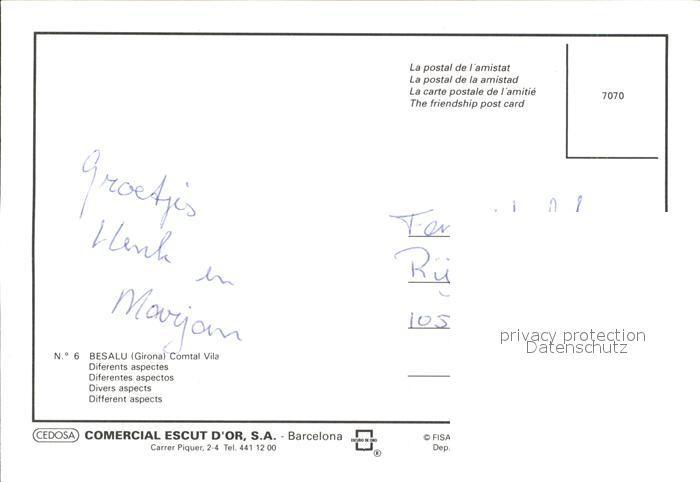 La postal de l´amistat
La postal de la amistad
La carte postale de l´amitié
The friendship post card
7070
Groetjes
Henk en
Marjan
Fam
Rij
105
privacy protection
Datenschutz
N.° 6 BESALU (Girona) Comtal Vila
Diferents aspectes
Diferentes aspectos
Divers aspects
Different aspects
CEDOSA COMERCIAL ESCUT D'OR, S.A. - Barcelona
Carrer Piquer, 2-4 Tel. 441 12 00
ESCUDO DE ORO
®
© FISA
Dep.